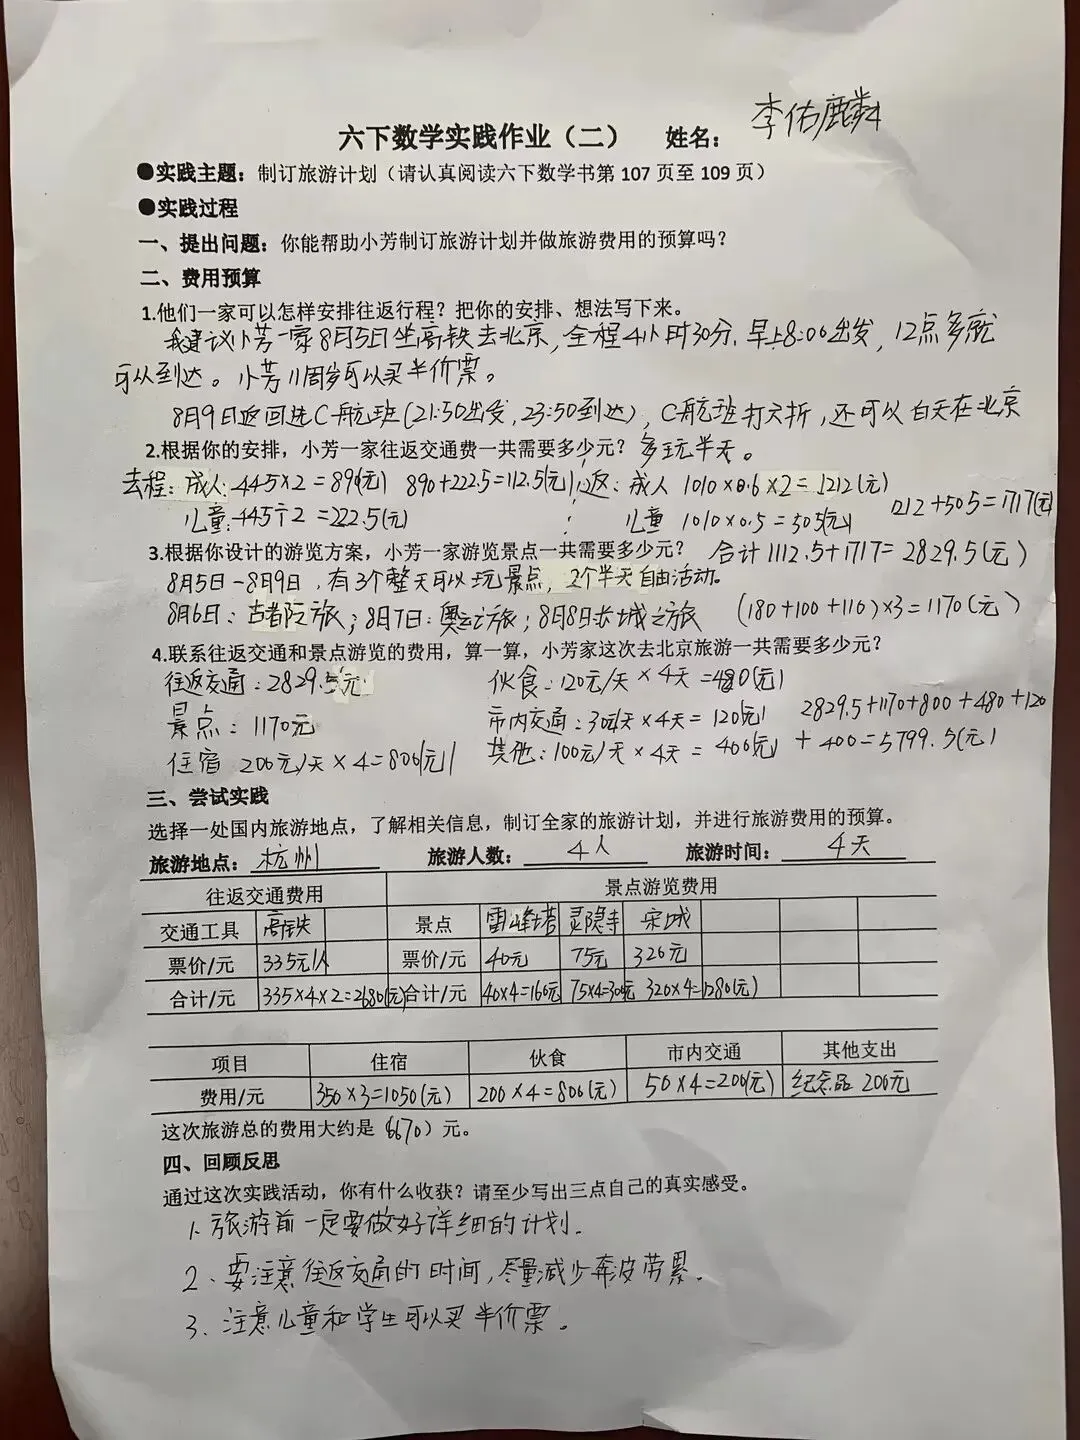 六下数学实践作业（二） 姓名：李佑麟
●实践主题：制订旅游计划（请认真阅读六下数学书第 107 页至 109 页）
●实践过程
一、提出问题：你能帮助小芳制订旅游计划并做旅游费用的预算吗？
二、费用预算
1.他们一家可以怎样安排往返行程？把你的安排、想法写下来。
我建议小芳一家8月5日坐高铁去北京，全程4小时30分，早上8:00出发，12点多就
可以到达。小芳11周岁可以买半价票。
8月9日返回选C航班（21:50出发，23:50到达），C航班打六折，还可以白天在北京
2.根据你的安排，小芳一家往返交通费一共需要多少元？多玩半天。
去程：成人：445×2=890(元) 890+222.5=1112.5(元) 返：成人 1010×0.6×2=1212(元)
儿童：445÷2=222.5(元) 儿童 1010×0.5=505(元) 1212+505=1717(元)
3.根据你设计的游览方案，小芳一家游览景点一共需要多少元？ 合计1112.5+1717=2829.5(元)
8月5日-8月9日，有3个整天可以玩景点，2个半天自由活动。
8月6日：古都之旅；8月7日：奥运之旅；8月8日长城之旅 (180+100+110)×3=1170(元)
4.联系往返交通和景点游览的费用，算一算，小芳家这次去北京旅游一共需要多少元？
往返交通：2829.5元 伙食：120元/天×4天=480(元)
景点：1170元 市内交通：30元/天×4天=120(元) 2829.5+1170+800+480+120
住宿 200元/天×4=800(元) 其他：100元/天×4天=400(元) +400=5799.5(元)
三、尝试实践
选择一处国内旅游地点，了解相关信息，制订全家的旅游计划，并进行旅游费用的预算。
旅游地点：杭州 旅游人数：4人 旅游时间：4天
往返交通费用 景点游览费用
交通工具 高铁 景点 雷峰塔 灵隐寺 宋城
票价/元 335元/人 票价/元 40元 75元 320元
合计/元 335×4×2=2680(元) 合计/元 40×4=160元 75×4=300元 320×4=1280(元)
项目 住宿 伙食 市内交通 其他支出
费用/元 350×3=1050(元) 200×4=800(元) 50×4=200(元) 纪念品 200元
这次旅游总的费用大约是（6670）元。
四、回顾反思
通过这次实践活动，你有什么收获？请至少写出三点自己的真实感受。
1、旅游前一定要做好详细的计划.
2、要注意往返交通的时间，尽量减少奔波劳累.
3、注意儿童和学生可以买半价票。